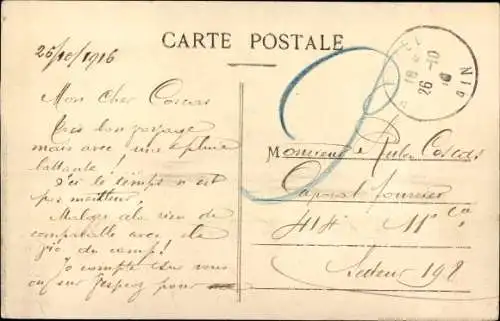 CARTE POSTALE
26/10/1916
Mon cher Coscas
Très bon voyage
mais avec une pluie
battante!
Ici le temps n est
pas meilleur.
Malgré cela rien de
comparable avec
du camp!
Je compte sur vous
pour
M onsieur Coscas
Caporal fourrier
414 11e Cie
Secteur 198
AIN
26-10